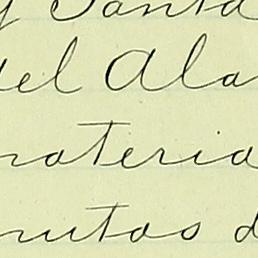 y Santa
del Ala
materia
nutos d